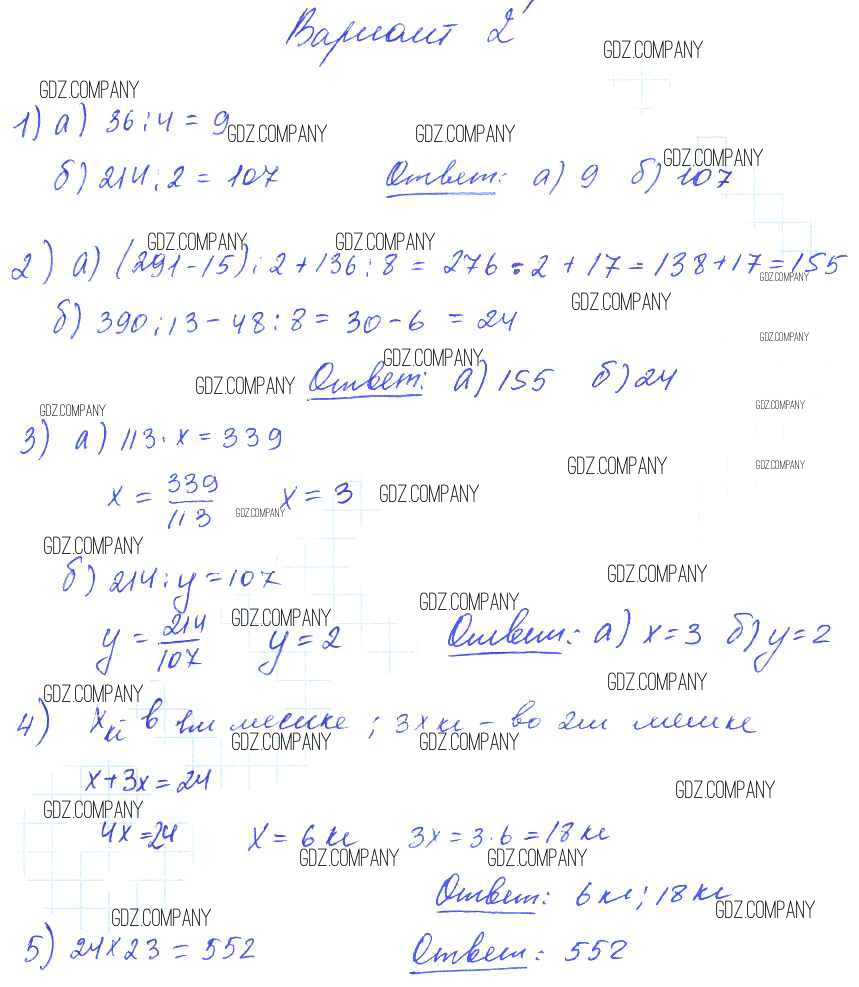 Вариант 2
GDZ.COMPANY
GDZ.COMPANY
1) а) 36 : 4 = 9
GDZ.COMPANY GDZ.COMPANY
GDZ.COMPANY
б) 214 : 2 = 107 Ответ: а) 9 б) 107
GDZ.COMPANY GDZ.COMPANY
2) а) (291-15) : 2 + 136 : 8 = 276 : 2 + 17 = 138 + 17 = 155
GDZ.COMPANY
GDZ.COMPANY
б) 390 : 13 - 48 : 8 = 30 - 6 = 24
GDZ.COMPANY
GDZ.COMPANY
GDZ.COMPANY Ответ: а) 155 б) 24
GDZ.COMPANY
GDZ.COMPANY
3) а) 113 · x = 339
GDZ.COMPANY GDZ.COMPANY
x = 339/113 x = 3 GDZ.COMPANY
GDZ.COMPANY
GDZ.COMPANY
б) 214 : y = 107
GDZ.COMPANY
GDZ.COMPANY
GDZ.COMPANY
y = 214/107 y = 2 Ответ: а) x = 3 б) y = 2
GDZ.COMPANY
GDZ.COMPANY
4) x кг в 1м мешке ; 3x кг - во 2м мешке
GDZ.COMPANY GDZ.COMPANY
x + 3x = 24
GDZ.COMPANY
GDZ.COMPANY
4x = 24 x = 6 кг 3x = 3 · 6 = 18 кг
GDZ.COMPANY GDZ.COMPANY
Ответ: 6 кг ; 18 кг
GDZ.COMPANY
GDZ.COMPANY
5) 24 x 23 = 552 Ответ: 552